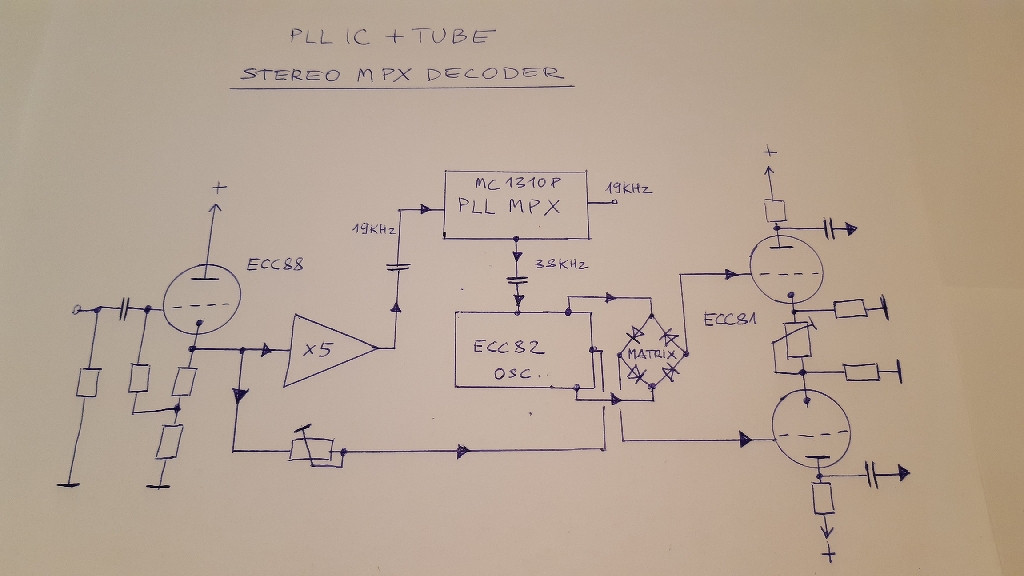 PLL IC + TUBE
STEREO MPX DECODER
+
+
MC1310P
PLL MPX
19KHz
19KHz
38KHz
ECC88
ECC81
X5
ECC82
OSC..
MATRIX
+